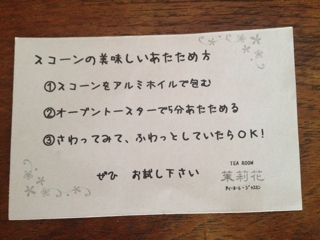 スコーンの美味しいあたため方
①スコーンをアルミホイルで包む
②オーブントースターで5分あたためる
③さわってみて、ふわっとしていたらOK!
ぜひ お試し下さい
TEA ROOM
茉莉花